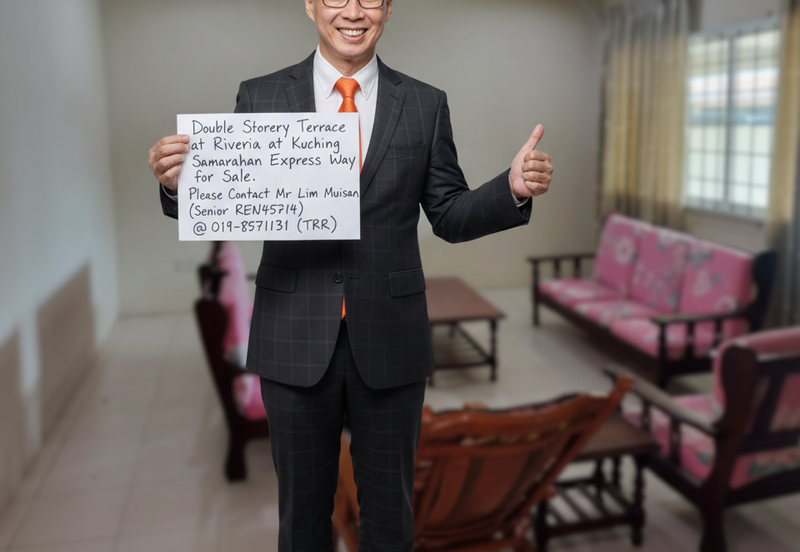 Double Storery Terrace
at Riveria at Kuching
Samarahan Express Way
for Sale.
Please Contact Mr Lim Muisan
(Senior REN45714)
@ 019-8571131 (TRR)